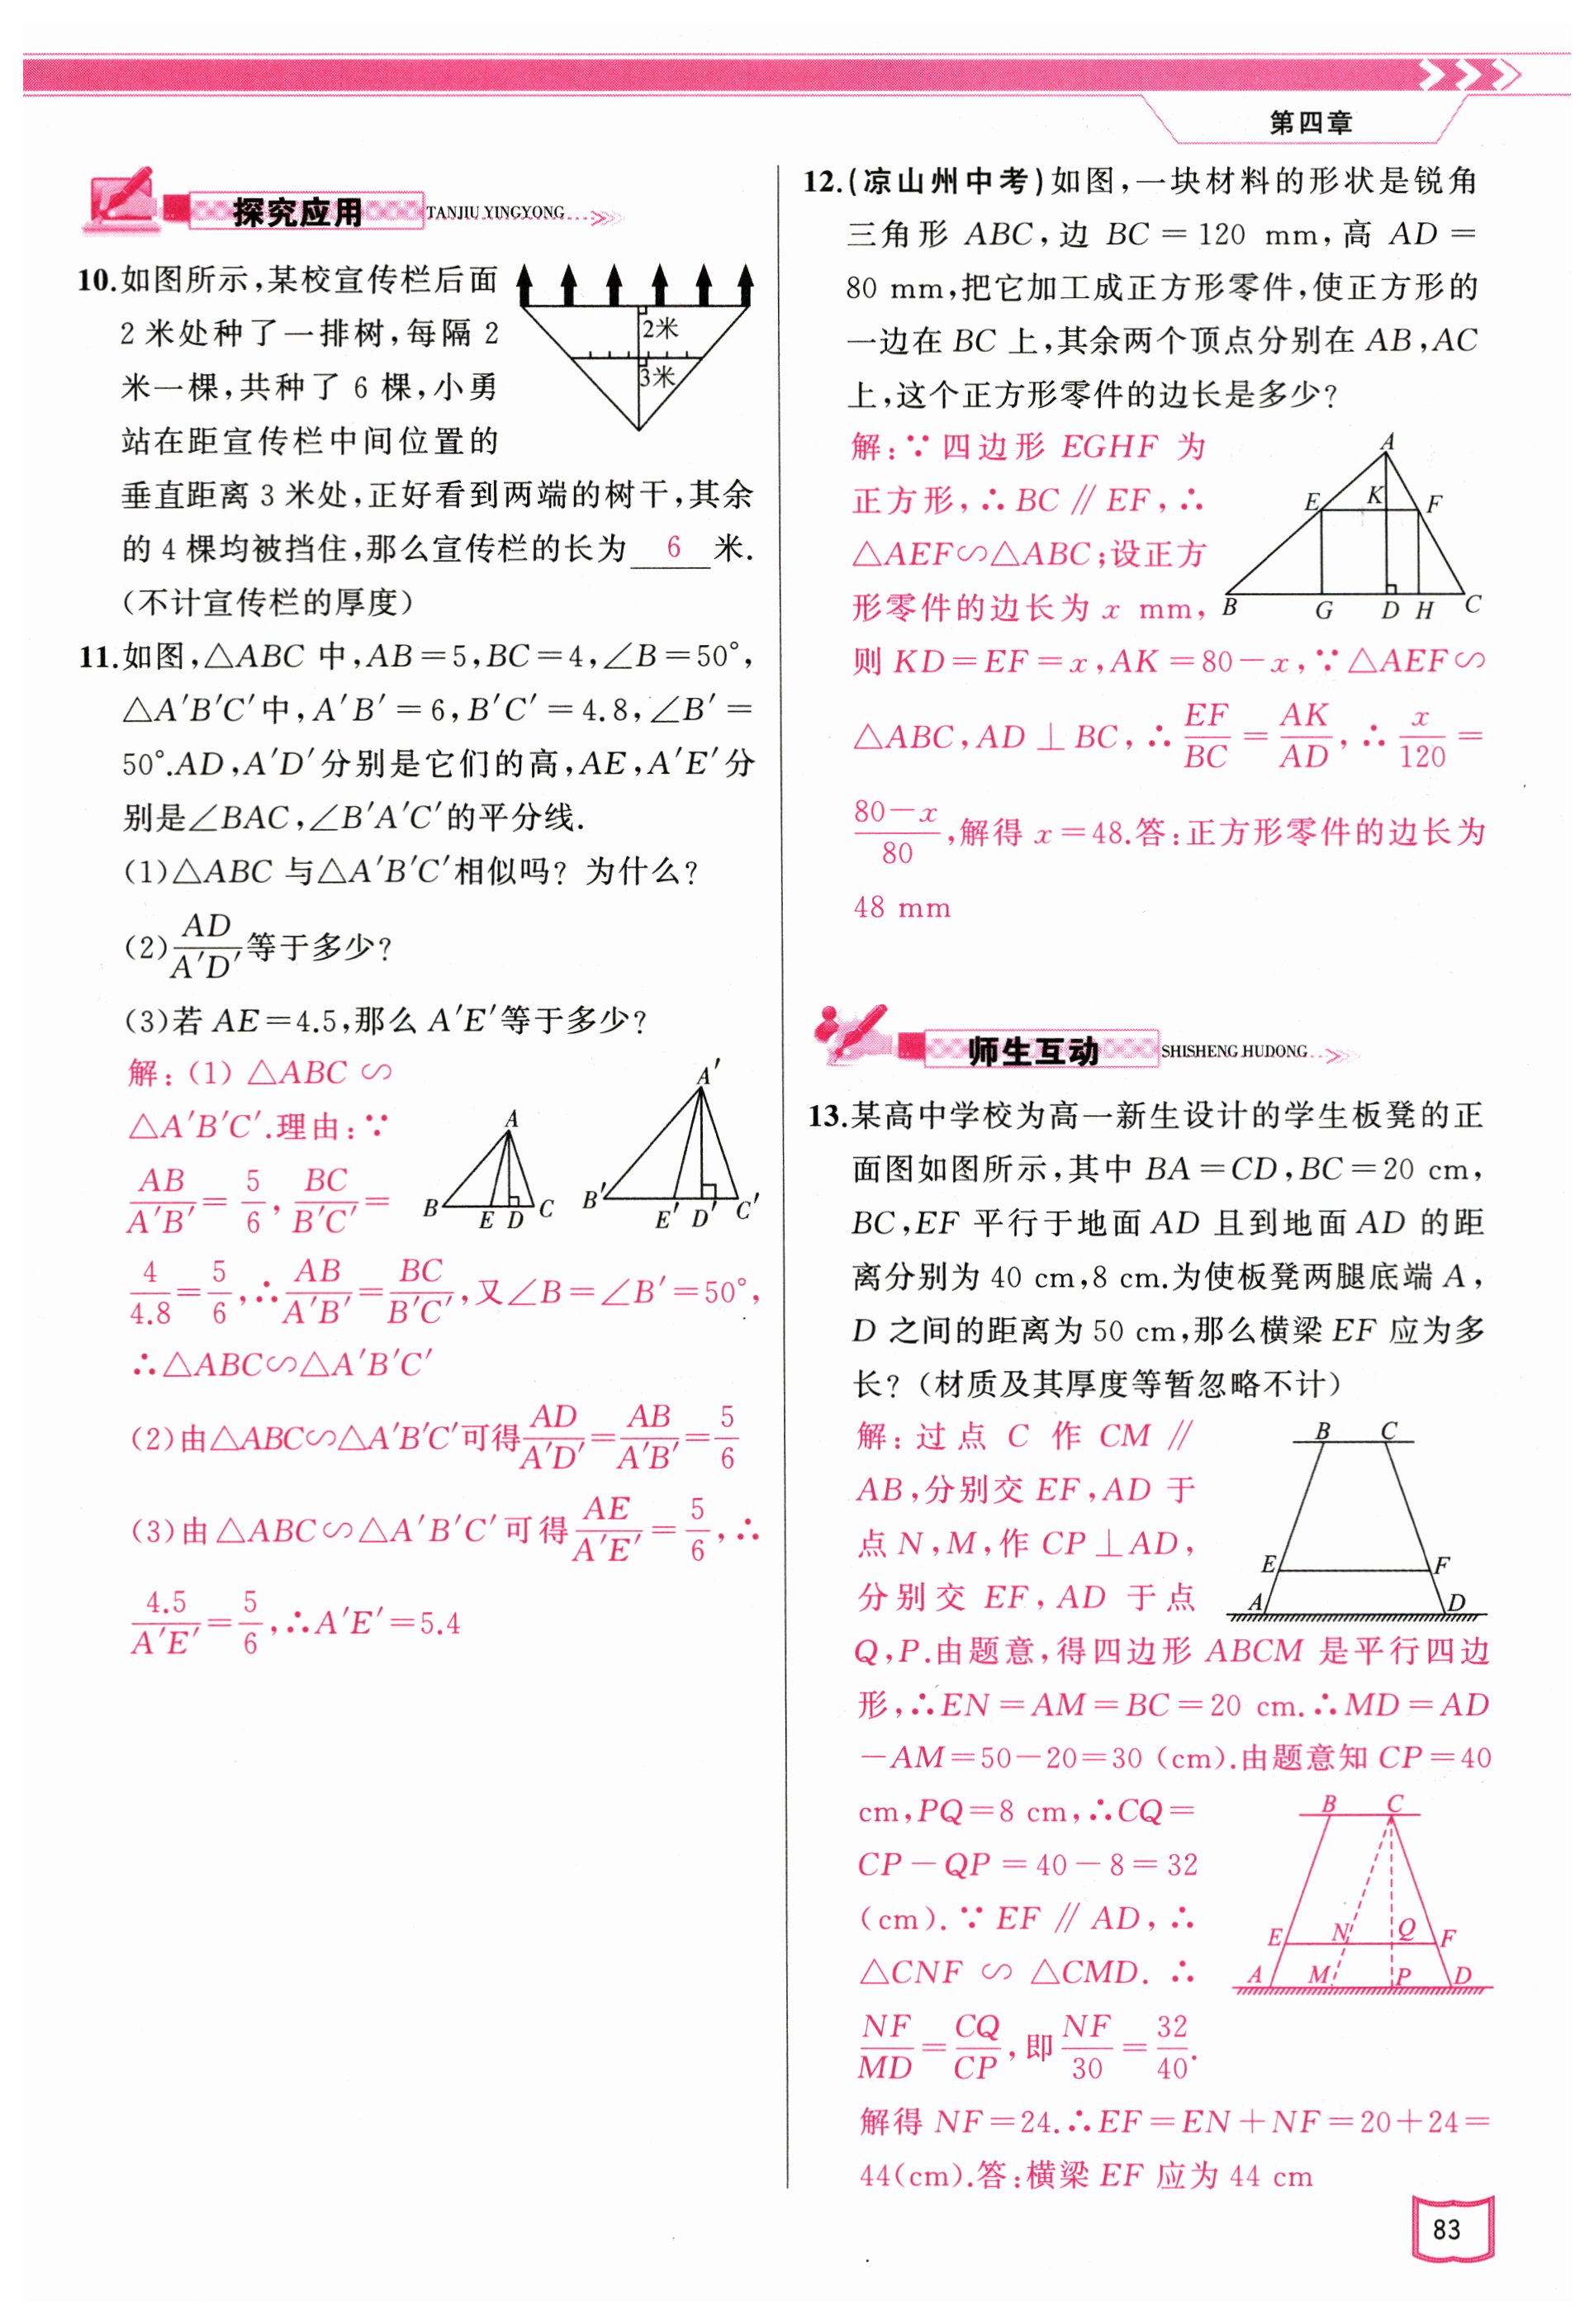 第四章
探究应用 TANJIU YINGYONG
10.如图所示,某校宣传栏后面
2米处种了一排树,每隔2
米一棵,共种了6棵,小勇
站在距宣传栏中间位置的
垂直距离3米处,正好看到两端的树干,其余
的4棵均被挡住,那么宣传栏的长为 6 米.
(不计宣传栏的厚度)
2米
3米
11.如图,△ABC中,AB=5,BC=4,∠B=50°,
△A′B′C′中,A′B′=6,B′C′=4.8,∠B′=
50°.AD,A′D′分别是它们的高,AE,A′E′分
别是∠BAC,∠B′A′C′的平分线.
(1)△ABC与△A′B′C′相似吗?为什么?
(2)AD/A′D′等于多少?
(3)若AE=4.5,那么A′E′等于多少?
解:(1)△ABC∽
△A′B′C′.理由:∵
AB/A′B′=5/6,BC/B′C′=
4/4.8=5/6,∴AB/A′B′=BC/B′C′,又∠B=∠B′=50°,
∴△ABC∽△A′B′C′
(2)由△ABC∽△A′B′C′可得AD/A′D′=AB/A′B′=5/6
(3)由△ABC∽△A′B′C′可得AE/A′E′=5/6,∴
4.5/A′E′=5/6,∴A′E′=5.4
A
B E D C
A′
B′ E′ D′ C′
12.(凉山州中考)如图,一块材料的形状是锐角
三角形ABC,边BC=120 mm,高AD=
80 mm,把它加工成正方形零件,使正方形的
一边在BC上,其余两个顶点分别在AB,AC
上,这个正方形零件的边长是多少?
解:∵四边形EGHF为
正方形,∴BC∥EF,∴
△AEF∽△ABC;设正方
形零件的边长为x mm,
则KD=EF=x,AK=80-x,∵△AEF∽
△ABC,AD⊥BC,∴EF/BC=AK/AD,∴x/120=
80-x/80,解得x=48.答:正方形零件的边长为
48 mm
A
E K F
B G D H C
师生互动 SHISHENG HUDONG
13.某高中学校为高一新生设计的学生板凳的正
面图如图所示,其中BA=CD,BC=20 cm,
BC,EF平行于地面AD且到地面AD的距
离分别为40 cm,8 cm.为使板凳两腿底端A,
D之间的距离为50 cm,那么横梁EF应为多
长?(材质及其厚度等暂忽略不计)
解:过点C作CM∥
AB,分别交EF,AD于
点N,M,作CP⊥AD,
分别交EF,AD于点
Q,P.由题意,得四边形ABCM是平行四边
形,∴EN=AM=BC=20 cm.∴MD=AD
-AM=50-20=30(cm).由题意知CP=40
cm,PQ=8 cm,∴CQ=
CP-QP=40-8=32
(cm).∵EF∥AD,∴
△CNF∽△CMD.∴
NF/MD=CQ/CP,即NF/30=32/40.
解得NF=24.∴EF=EN+NF=20+24=
44(cm).答:横梁EF应为44 cm
B C
E F
A D
B C
E N Q F
A M P D
83